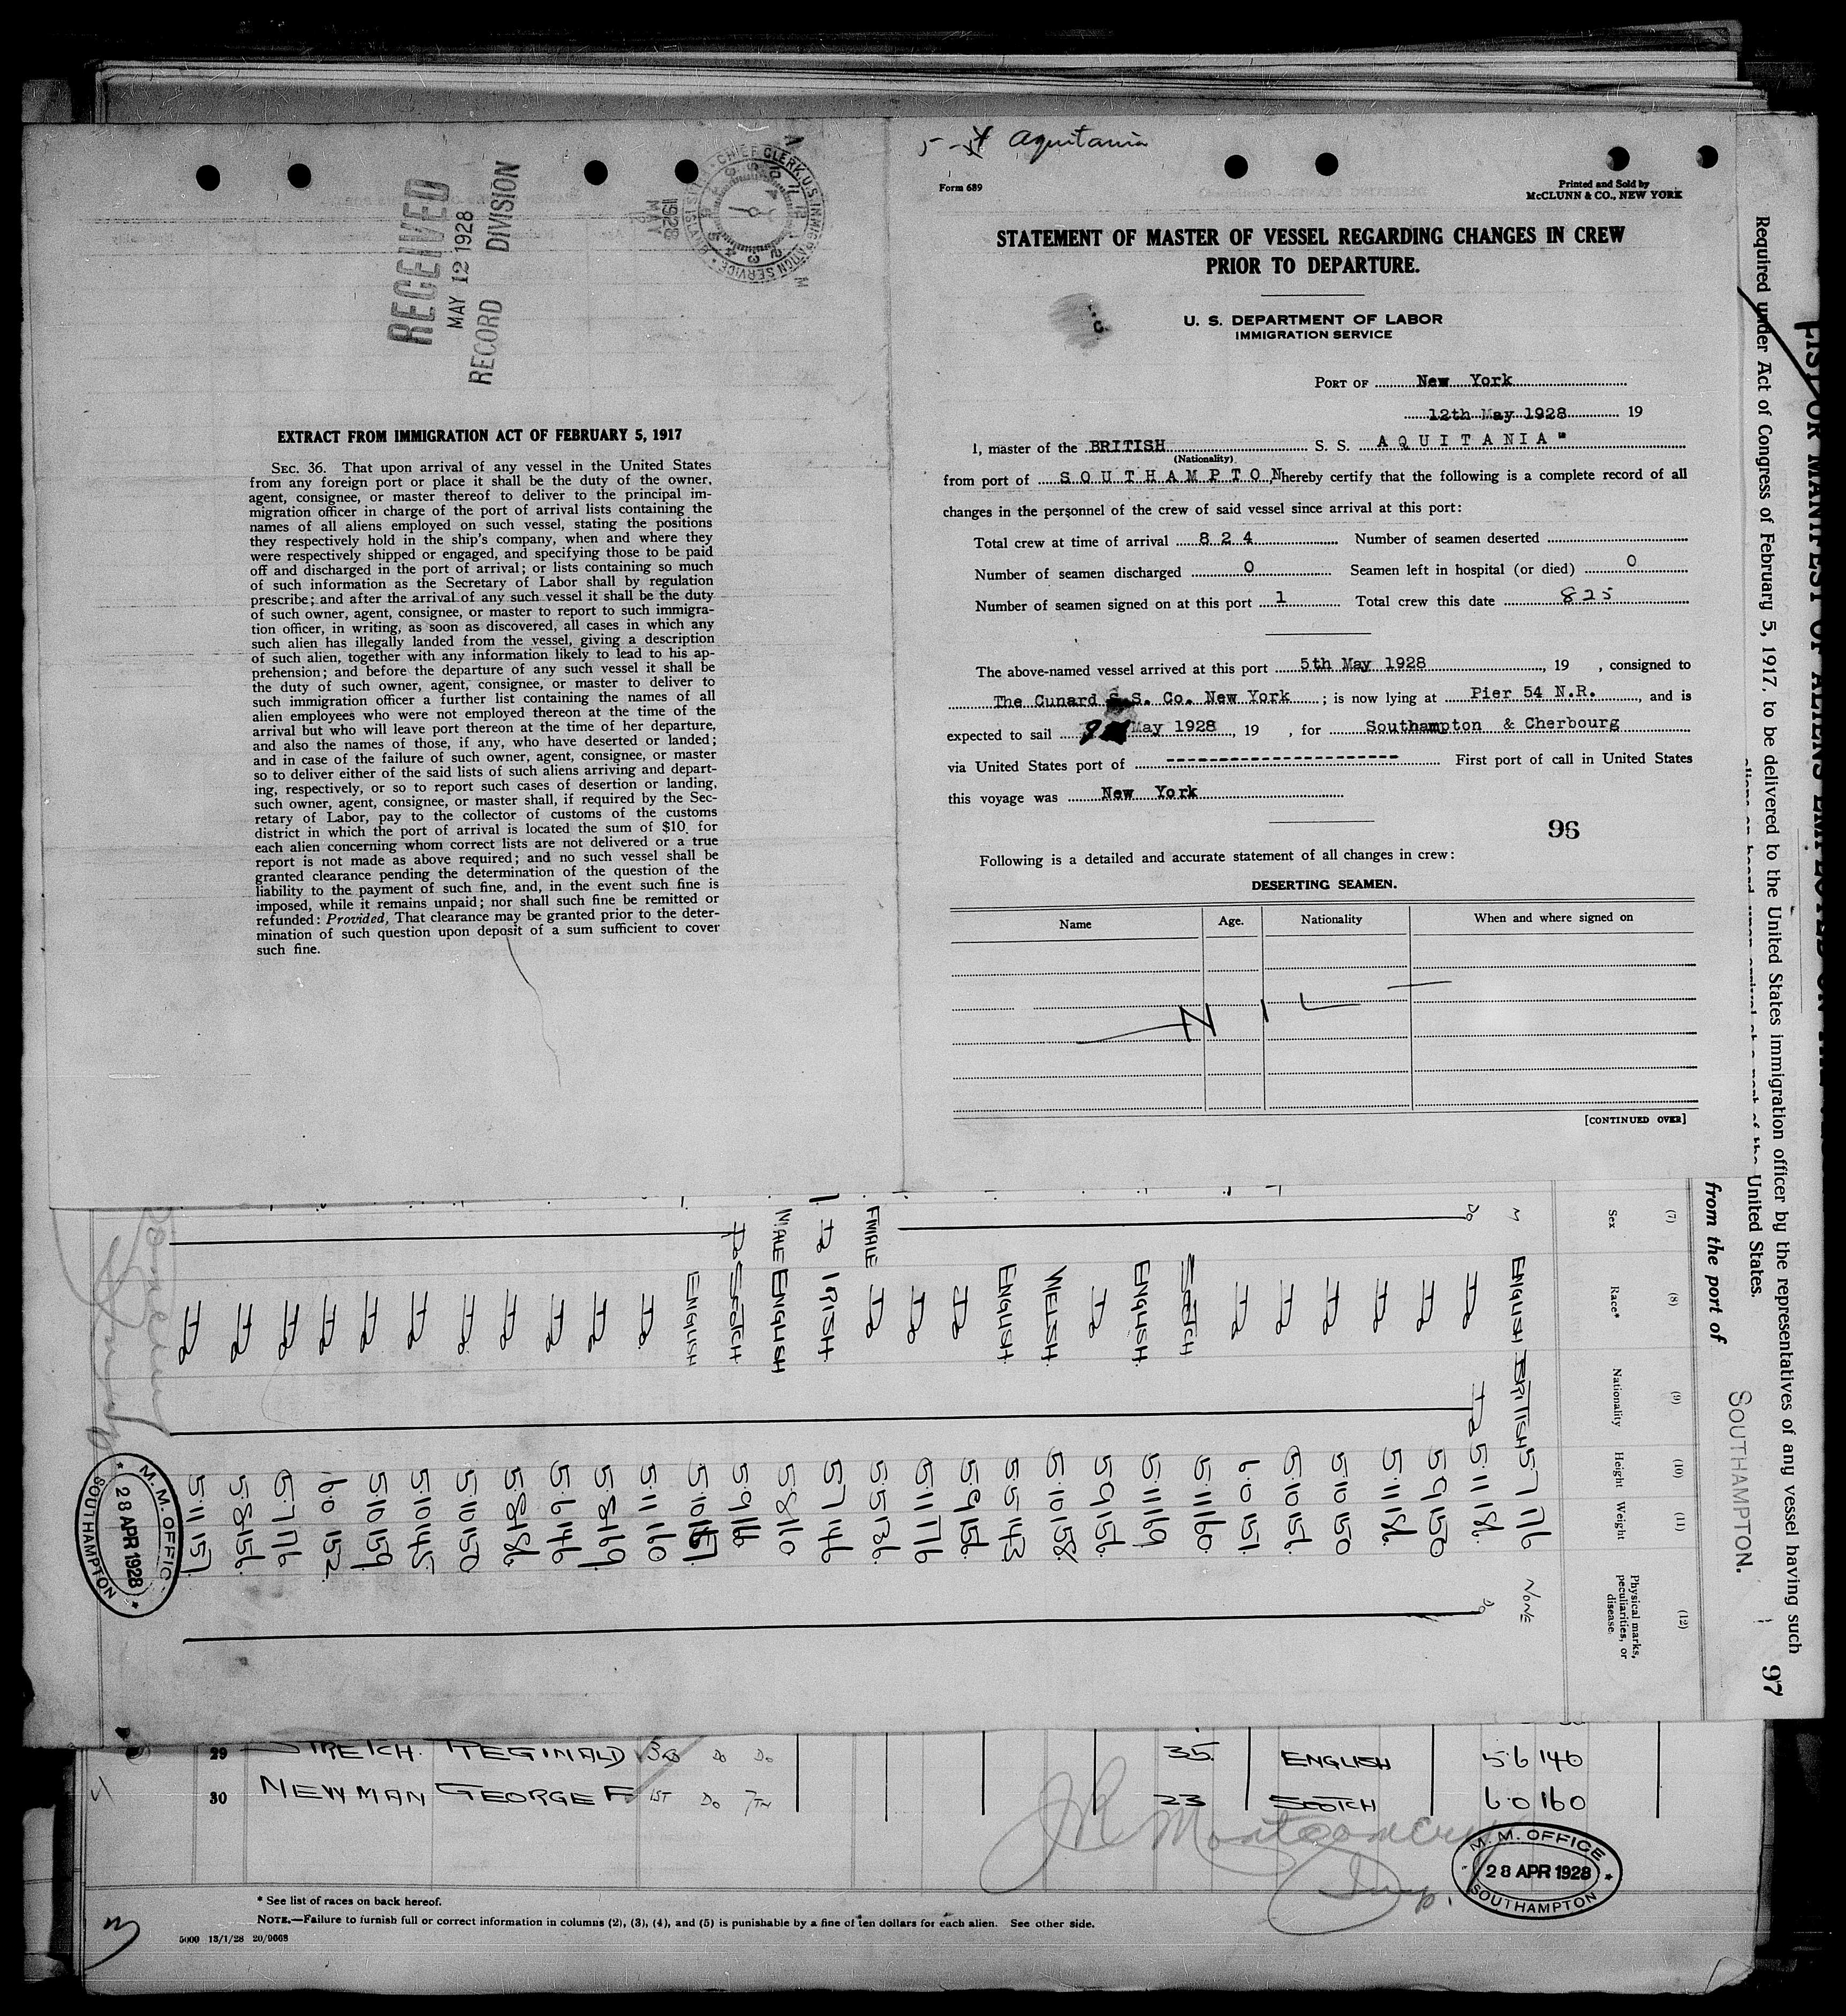 5-5 Aquitania
RECEIVED
MAY 12 1928
RECORD DIVISION
CHIEF CLERK, U.S. IMMIGRATION SERVICE
1928
MAY
EXTRACT FROM IMMIGRATION ACT OF FEBRUARY 5, 1917
SEC. 36. That upon arrival of any vessel in the United States
from any foreign port or place it shall be the duty of the owner,
agent, consignee, or master thereof to deliver to the principal im-
migration officer in charge of the port of arrival lists containing the
names of all aliens employed on such vessel, stating the positions
they respectively hold in the ship's company, when and where they
were respectively shipped or engaged, and specifying those to be paid
off and discharged in the port of arrival; or lists containing so much
of such information as the Secretary of Labor shall by regulation
prescribe; and after the arrival of any such vessel it shall be the duty
of such owner, agent, consignee, or master to report to such immigra-
tion officer, in writing, as soon as discovered, all cases in which any
such alien has illegally landed from the vessel, giving a description
of such alien, together with any information likely to lead to his ap-
prehension; and before the departure of any such vessel it shall be
the duty of such owner, agent, consignee, or master to deliver to
such immigration officer a further list containing the names of all
alien employees who were not employed thereon at the time of the
arrival but who will leave port thereon at the time of her departure,
and also the names of those, if any, who have deserted or landed;
and in case of the failure of such owner, agent, consignee, or master
so to deliver either of the said lists of such aliens arriving and depart-
ing, respectively, or so to report such cases of desertion or landing,
such owner, agent, consignee, or master shall, if required by the Sec-
retary of Labor, pay to the collector of customs of the customs
district in which the port of arrival is located the sum of $10 for
each alien concerning whom correct lists are not delivered or a true
report is not made as above required; and no such vessel shall be
granted clearance pending the determination of the question of the
liability to the payment of such fine, and, in the event such fine is
imposed, while it remains unpaid; nor shall such fine be remitted or
refunded: Provided, That clearance may be granted prior to the deter-
mination of such question upon deposit of a sum sufficient to cover
such fine.
Form 689
Printed and Sold by
McCLUNN & CO., NEW YORK
STATEMENT OF MASTER OF VESSEL REGARDING CHANGES IN CREW
PRIOR TO DEPARTURE.
U. S. DEPARTMENT OF LABOR
IMMIGRATION SERVICE
PORT OF New York
12th May 1928 19
I, master of the BRITISH S. S. AQUITANIA"
(Nationality)
from port of SOUTHAMPTON, hereby certify that the following is a complete record of all
changes in the personnel of the crew of said vessel since arrival at this port:
Total crew at time of arrival 824 Number of seamen deserted
Number of seamen discharged 0 Seamen left in hospital (or died) 0
Number of seamen signed on at this port 1 Total crew this date 825
The above-named vessel arrived at this port 5th May 1928, 19 , consigned to
The Cunard S.S. Co. New York; is now lying at Pier 54 N.R., and is
expected to sail May 1928, 19 , for Southampton & Cherbourg
via United States port of -------------------- First port of call in United States
this voyage was New York
96
Following is a detailed and accurate statement of all changes in crew:
DESERTING SEAMEN.
Name Age. Nationality When and where signed on
NIL
[CONTINUED OVER]
Required under Act of Congress of February 5, 1917, to be delivered to the United States immigration officer by the representatives of any vessel having such
United States.
from the port of SOUTHAMPTON.
97
(7) (8) (9) (10) (11) (12)
Sex Race* Nationality Height Weight Physical marks, peculiarities, or disease.
M ENGLISH BRITISH 5·7 176 NONE
Do Do Do 5·11 186 Do
Do 5·9 150
Do 5·11 186
Do 5·10 150
Do 5·10 151
Do 6·0 151
SCOTCH 5·11 160
ENGLISH 5·11 169
Do 5·9 156
WELSH 5·10 158
ENGLISH 5·5 143
Do 5·9 156
Do 5·11 176
FMALE Do 5·5 136
Do IRISH 5·7 146
MALE ENGLISH 5·8 160
Do SCOTCH 5·9 166
ENGLISH 5·10 157
Do 5·11 160
Do 5·8 169
Do 5·6 146
Do 5·8 186
Do 5·10 150
Do 5·10 145
Do 5·10 159
Do 6·0 152
Do 5·7 176
Do 5·8 156
Do 5·11 157
M. M. OFFICE
28 APR 1928
SOUTHAMPTON
29 STRETCH. REGINALD 3RD Do Do 35 ENGLISH 5·6 140
30 NEWMAN GEORGE F. 1ST Do 7TH 23 SCOTCH 6·0 160
Montgomery
M. M. OFFICE
28 APR 1928
SOUTHAMPTON
* See list of races on back hereof.
NOTE.—Failure to furnish full or correct information in columns (2), (3), (4), and (5) is punishable by a fine of ten dollars for each alien. See other side.
5000 13/1/28 20/9668